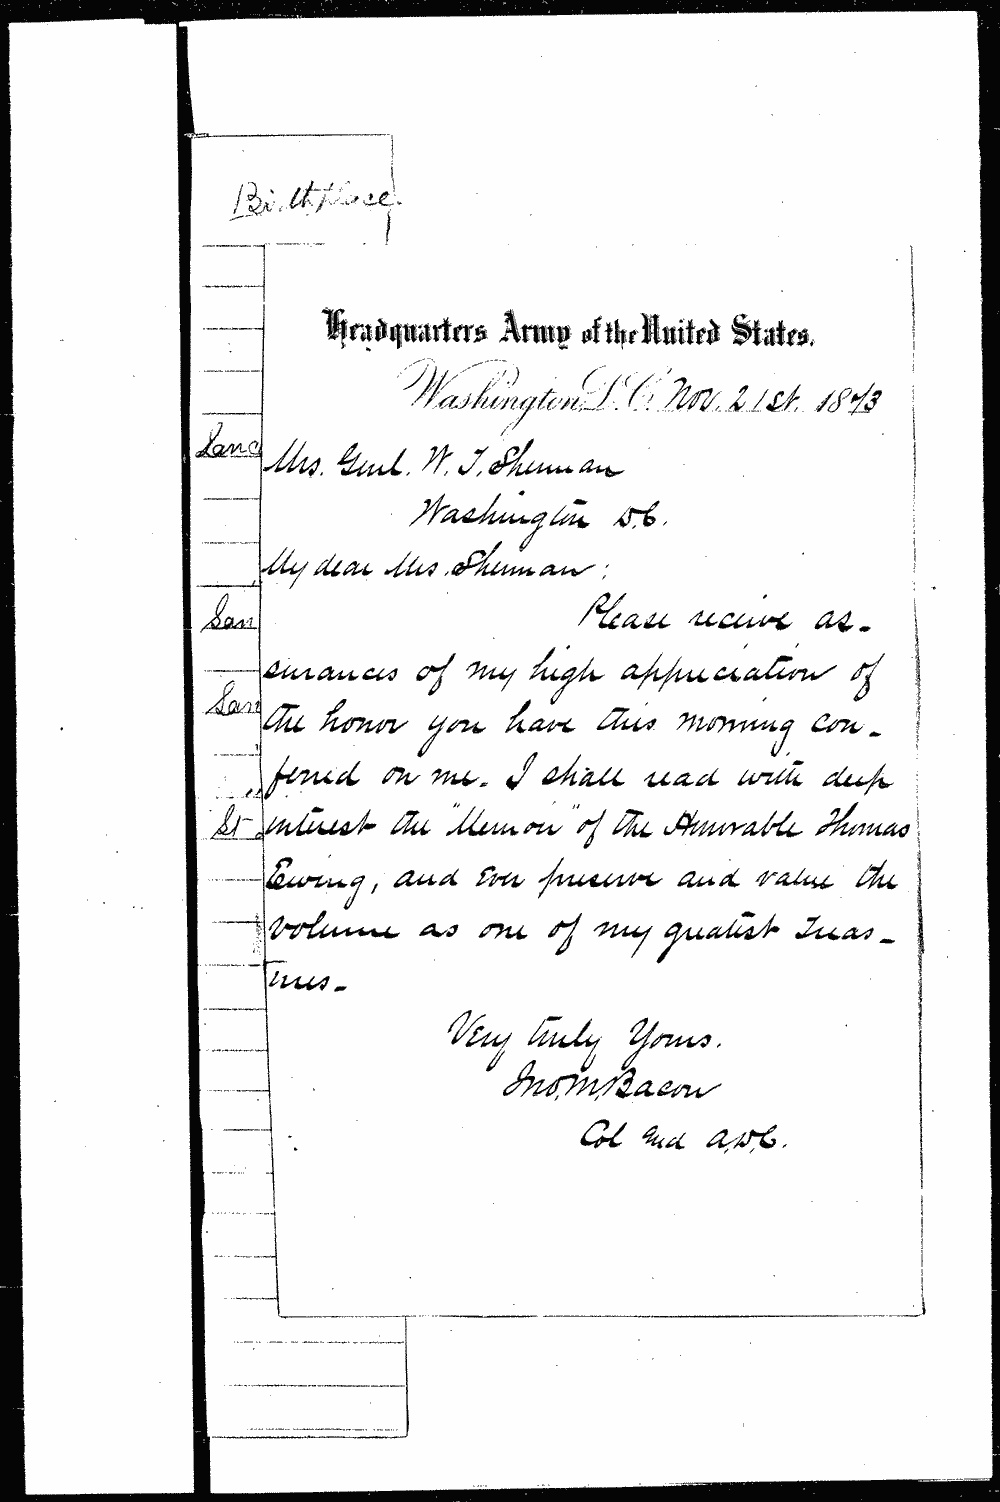 Birthplace.
Headquarters Army of the United States.
Washington, D.C. Nov. 21st. 1873
Lanc
Mrs. Genl. W. T. Sherman
Washington D.C.
My dear Mrs. Sherman:
San
Please receive as-
surances of my high appreciation of
San
the honor you have this morning con-
ferred on me. I shall read with deep
St
interest the "Memoir" of the Honorable Thomas
Ewing, and Ever preserve and value the
volume as one of my greatest Treas-
ures-
Very truly Yours.
Jno. M. Bacon
Col and A.D.C.